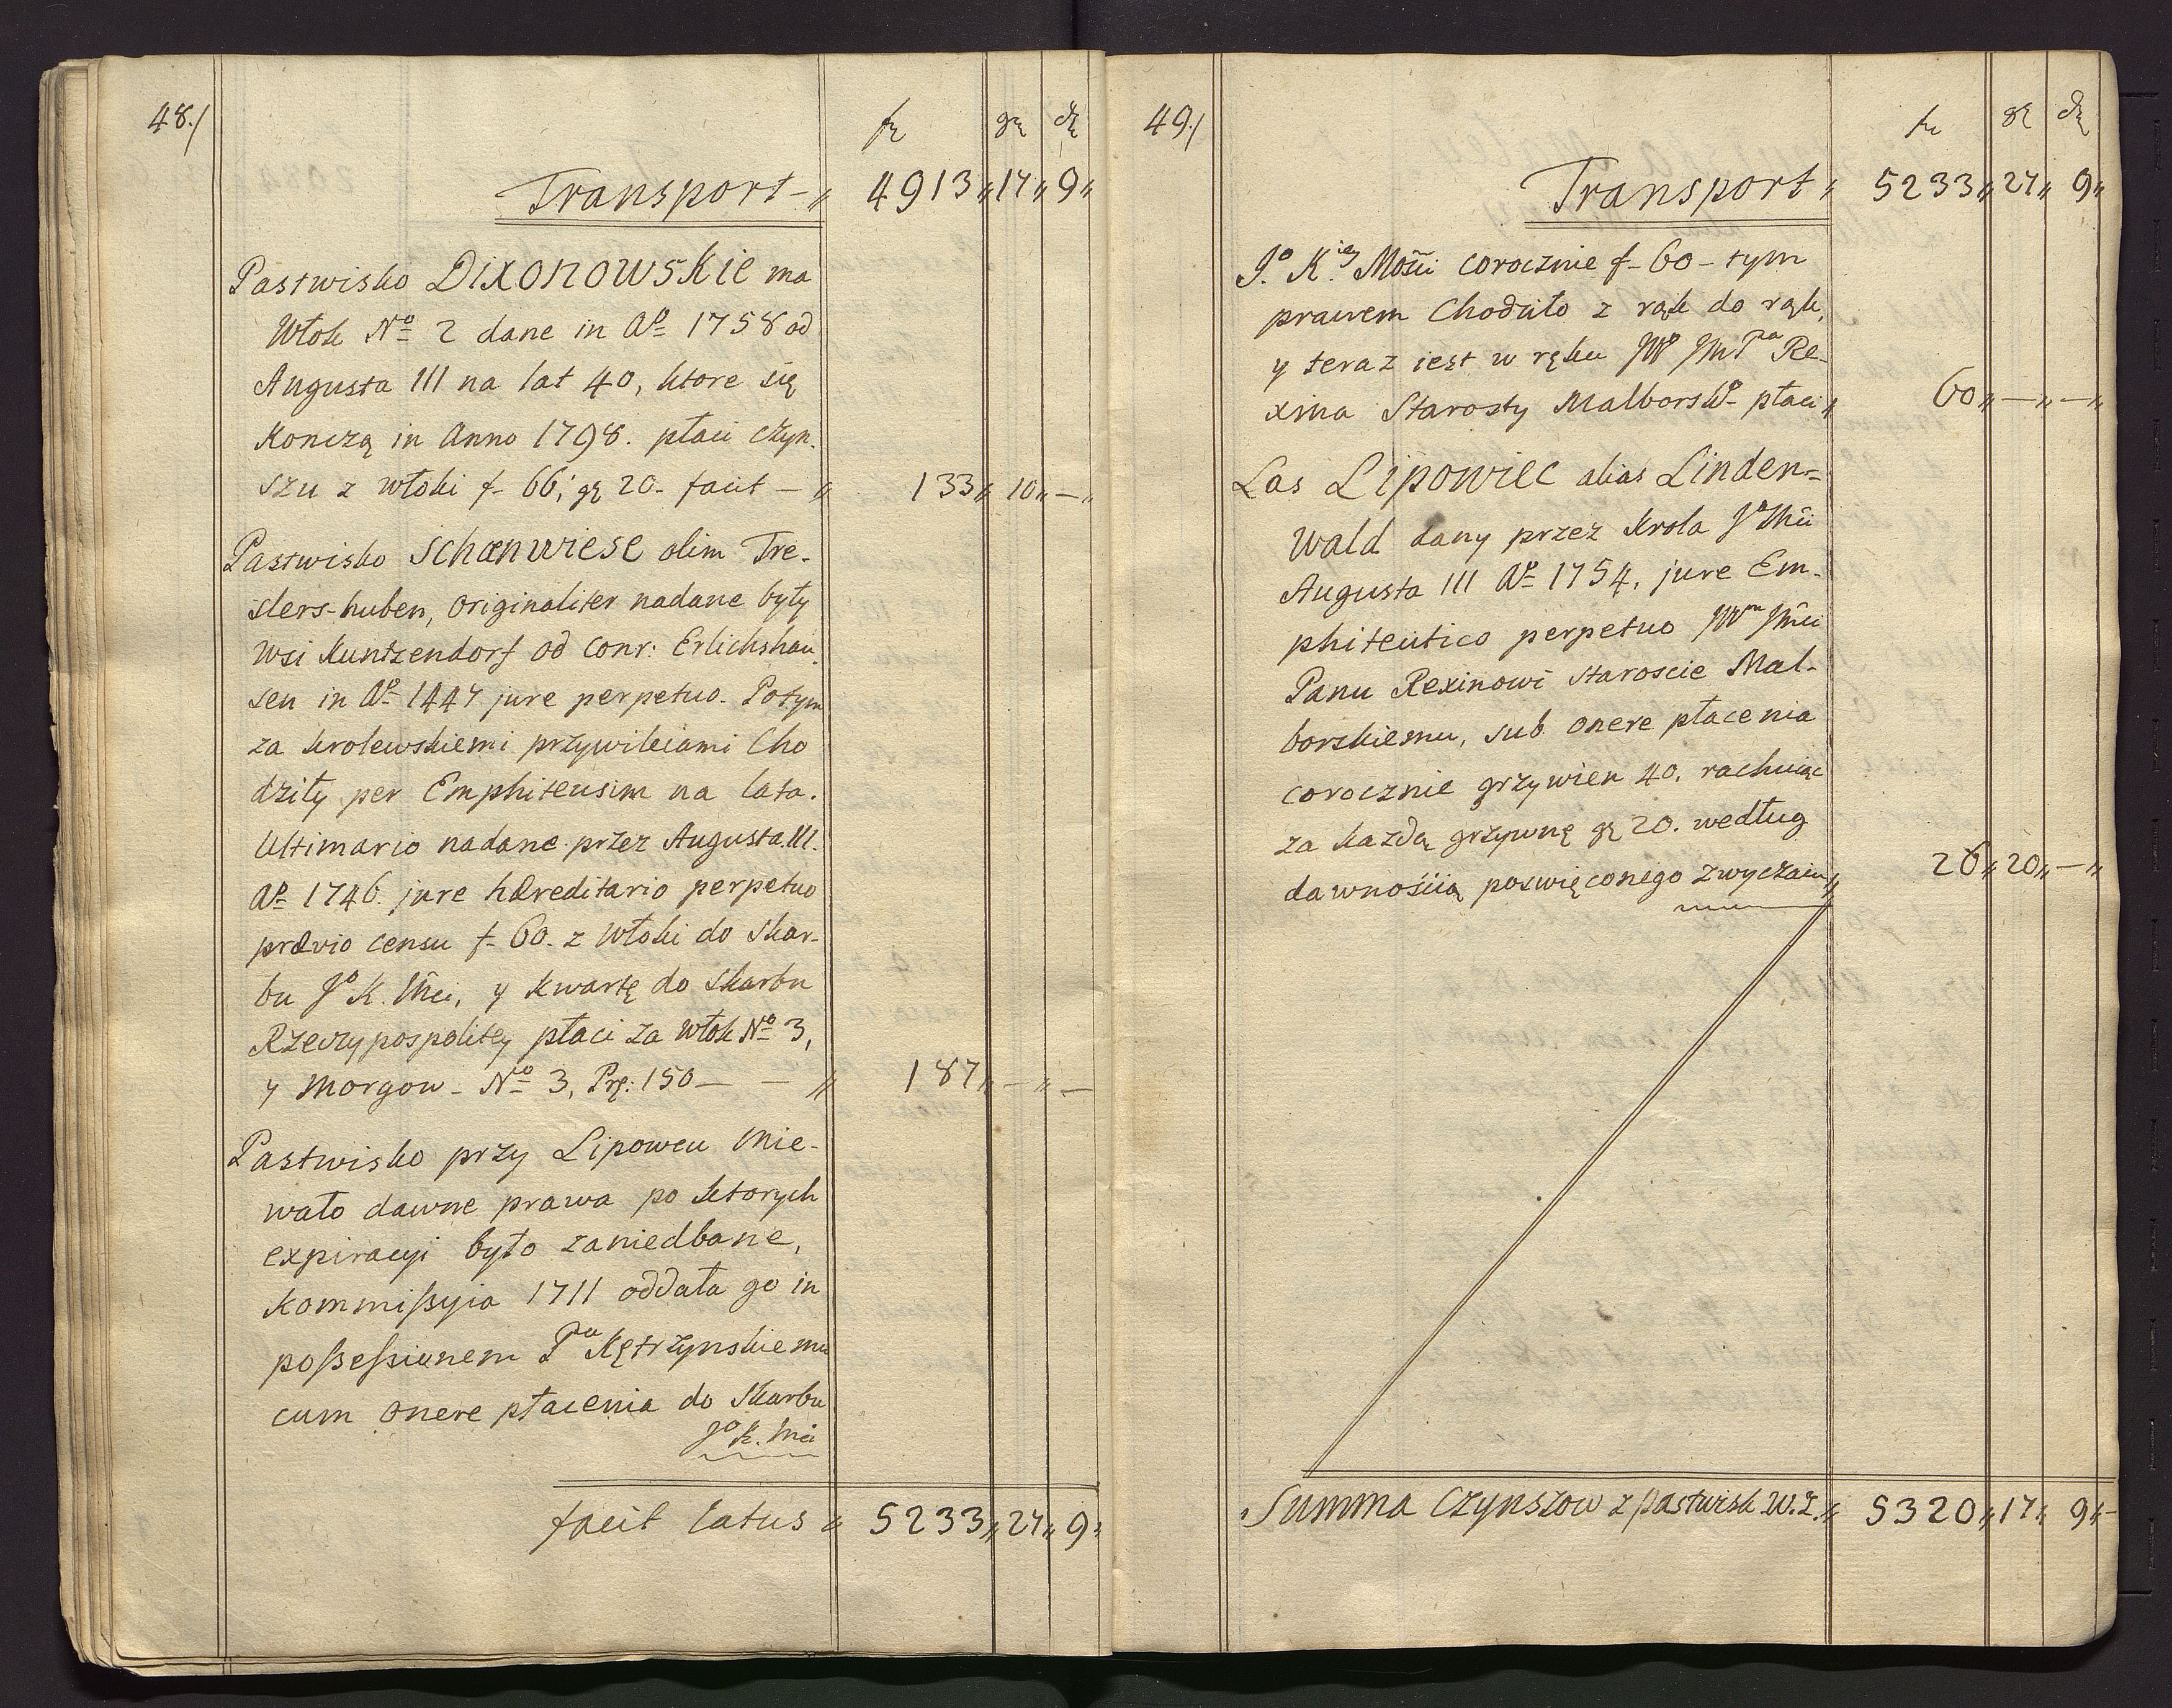 48./
fr gr dr
Transport - " 4913 " 17 " 9 "
Pastwisko Dixonowskie ma
Włok No 2 dane in Ao 1758 od
Augusta III na lat 40, ktore się
Konczą in Anno 1798. płaci czyn-
szu z włoki f- 66, gr 20- facit - " 133 " 10 " - "
Pastwisko Schœnwiese olim Tre-
slers-huben, originaliter nadane były
Wsi Kuntzendorf od Conr: Erlichshau-
sen in Ao 1447 jure perpetuo. Potym
za krolewskiemi przywileiami Cho
dziły per Emphiteusim na lata.
Ultimario nadane przez Augusta III.
Ao 1746. jure hæreditario perpetuo
prævio censu f- 60. z włoki do Skar-
bu Jo K. Mci, y kwartę do Skarbu
Rzeczypospolitey płaci za włok No 3,
y Morgow - No 3, Prę: 150 - - " 187 " - " -
Pastwisko przy Lipowcu Mie-
wało dawne prawa po ktorych
expiracyi było zaniedbane,
Kommissyia 1711 oddała go in
possessionem Pa Kętrzynskiemu
cum onere płacenia do Skarbu
Jo K. Mci
facit Latus " 5233 " 27 " 9 "
49./
fr gr dr
Transport " 5233 " 27 " 9 "
Jo Kiey Mości corocznie f- 60 - tym
prawem Chodziło z rąk do rąk,
y teraz iest w ręku JWo JmPa Re-
xina Starosty Malborsko płaci " 60 " - " - "
Las Lipowiec alias Linden-
Wald dany przez Krola Jo Mci
Augusta III Ao 1754, jure Em-
phiteutico perpetuo JWm Jmci
Panu Rexinowi Staroscie Mal-
borskiemu, sub onere płacenia
corocznie grzywien 40, rachuiąc
za kazdą grzywnę gr 20. według
dawnośćią poswięconego zwyczaiu " 26 " 20 " - "
Summa Czynszow z pastwisk W. Z. " 5320 " 17 " 9 " -